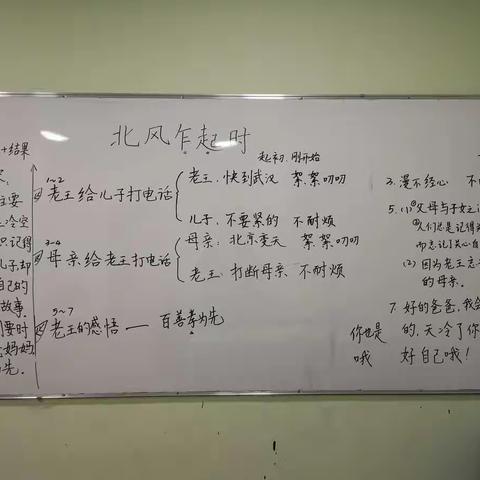 北风乍起时
起初、刚开始
+结果
主要
冷空
识记得
儿子却
自己的
故事.
要时
妈妈
先.
1~2
老王给儿子打电话
老王:快到武汉 絮絮叨叨
儿子:不要紧的 不耐烦
3~4
母亲给老王打电话
母亲:北京变天 絮絮叨叨
老王:打断母亲 不耐烦
5~7
老王的感悟 — 百善孝为先
3.漫不经心 不
5.(1)①父母与子女之
②人们总是记得
而忘记了关心自
(2) 因为老王忘
的母亲.
7.好的爸爸,我会
你也是的,天冷了你
哦 好自己哦!